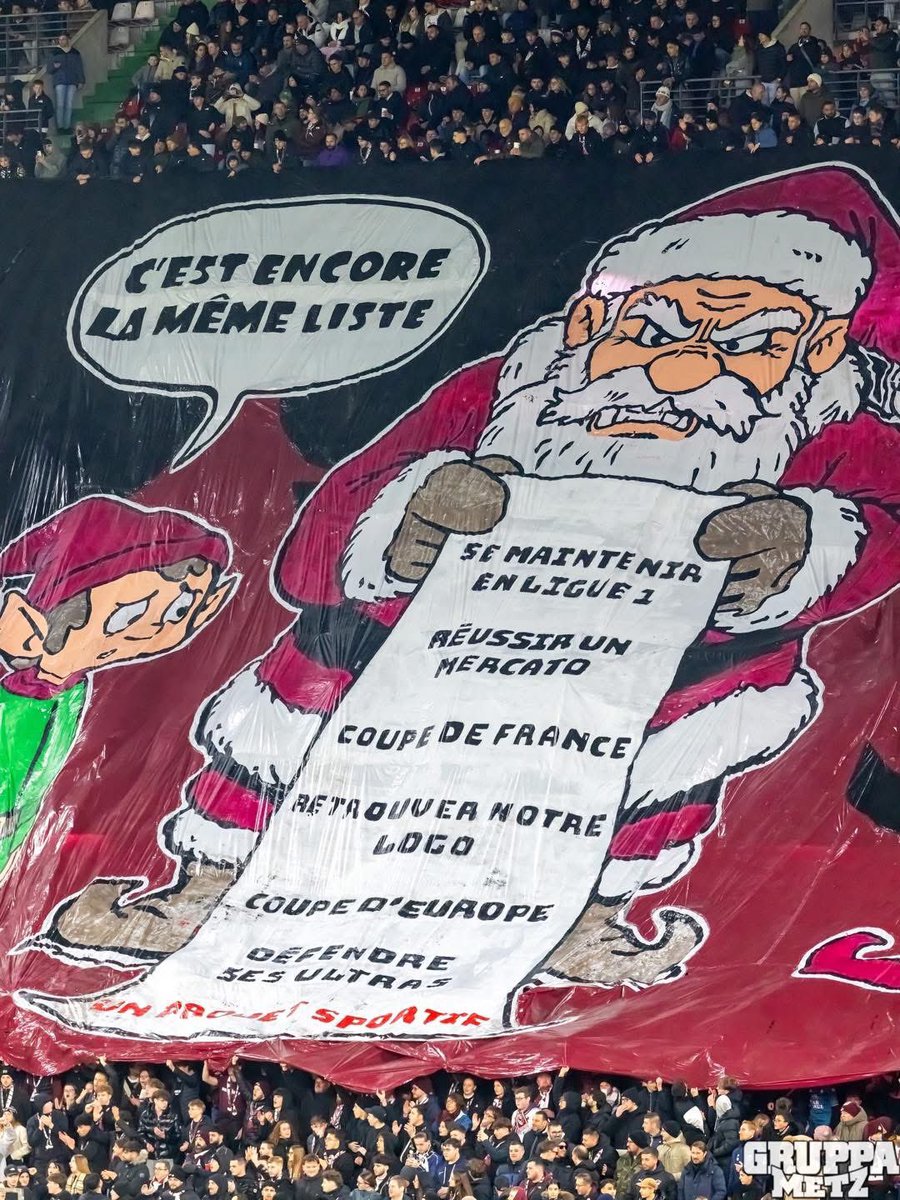 C'EST ENCORE
LA MÊME LISTE
SE MAINTENIR
EN LIGUE 1
RÉUSSIR UN
MERCATO
COUPE DE FRANCE
RETROUVER NOTRE
LOGO
COUPE D'EUROPE
DÉFENDRE
SES ULTRAS
UN PROJET SPORTIF
GRUPPA
METZ